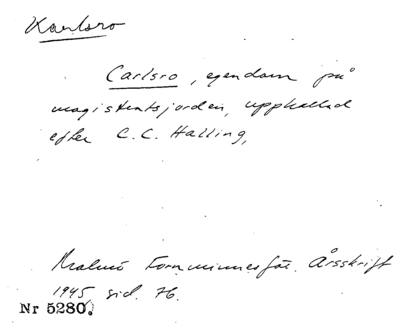 Karlsro
Carlsro, egendom på
magistratsjorden, uppkallad
efter C. C. Halling,
Malmö Fornminnesför. Årsskrift
1945 sid. 76.
Nr 5280.